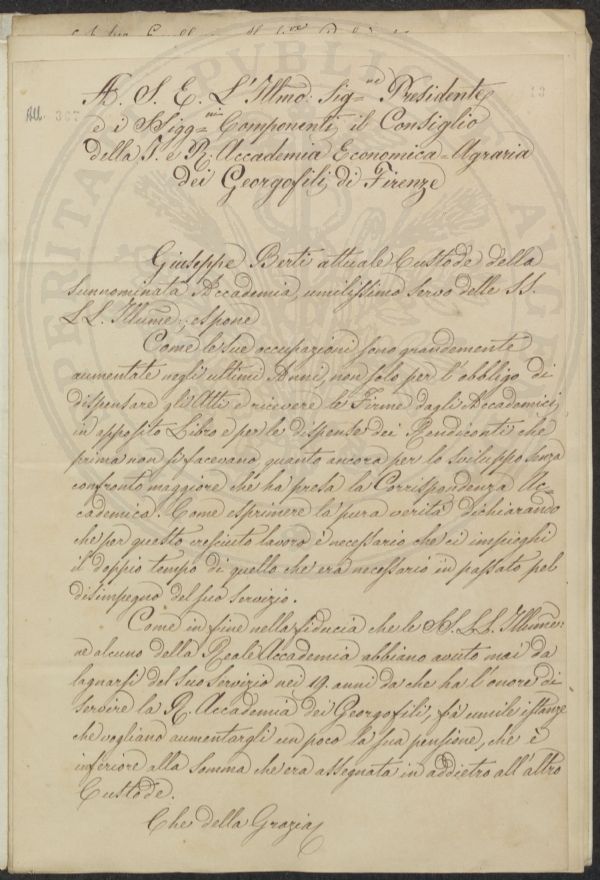 All. 367
13
A. S. E. L'Illmo: Sig:ne Presidente
e i SSigg:ri Componenti il Consiglio
della I. e R. Accademia Economica=Agraria
dei Georgofili di Firenze
Giuseppe Berti attuale Custode della
sunnominata Accademia, umilissimo servo delle SS.
LL. Illume:, espone
Come le sue occupazioni sono grandemente
aumentate negli ultimi Anni, non solo per l'obbligo di
dispensare gli Atti e ricevere le Firme dagli Accademici
in apposito Libro e per le dispense dei Rendiconti che
prima non si facevano, quanto ancora per lo sviluppo senza
confronto maggiore che ha presa la Corrispondenza Ac=
cademica. Come esprimere la pura verità dichiarando
che per questo cresciuto lavoro è necessario che ci impieghi
il doppio tempo di quello che era necessario in passato pel
disimpegno del suo servizio.
Come in fine nella fiducia che le SS. LL. Illume:
ne alcuno della Reale Accademia abbiano avuto mai da
lagnarsi del suo servizio nei 19. anni da che ha l'onore di
servire la R. Accademia dei Georgofili, fà umile istanza
che vogliano aumentargli un poco la sua pensione, che è
inferiore alla somma che era assegnata in addietro all'altro
Custode.
Che della Grazia
PUBLICO
PROSPERITATI
AUGENDAE